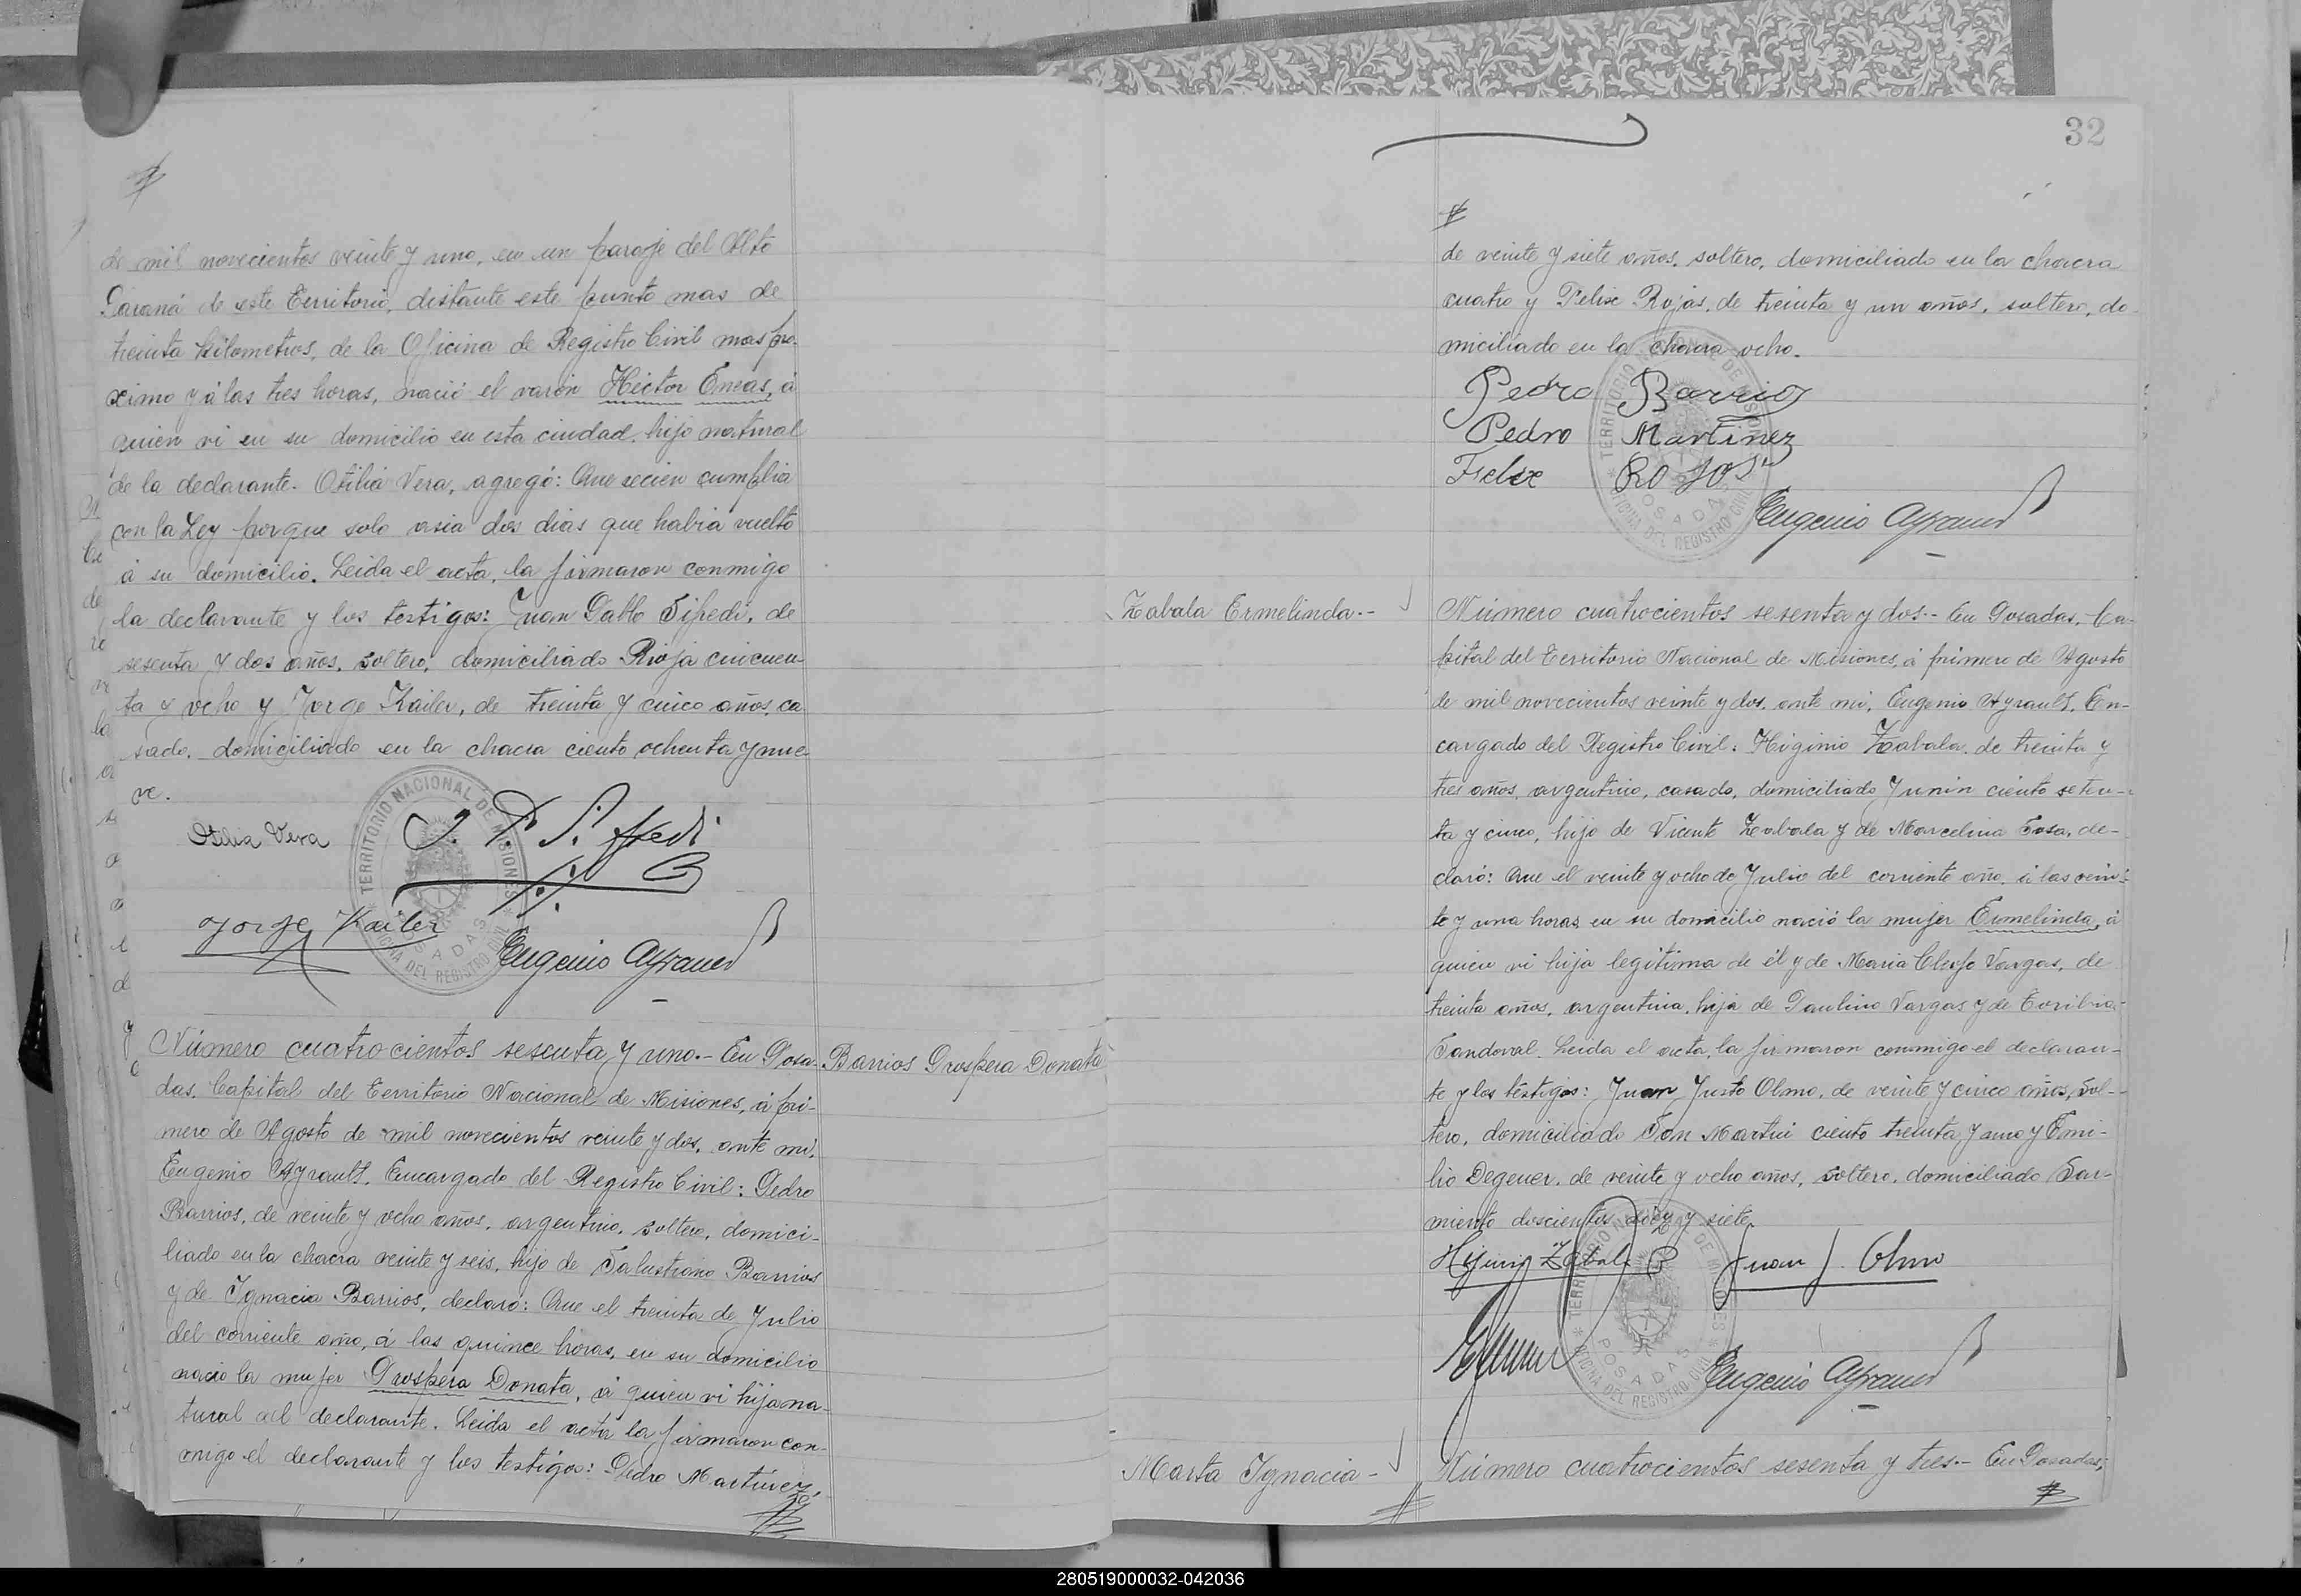 de mil novecientos veinte y uno, en un paraje del Alto
Paraná de este Territorio, distante este punto mas de
treinta kilometros, de la Oficina de Registro Civil mas pro-
ximo y á las tres horas, nació el varón Héctor Eneas, á
quien vi en su domicilio en esta ciudad, hijo natural
de la declarante. Otilia Vera, agregó: Que recien cumplia
con la Ley porque solo asia dos dias que habia vuelto
á su domicilio. Leida el acta, la firmaron conmigo
la declarante y los testigos: Juan Pablo Sifredi, de
sesenta y dos años, soltero, domiciliado Rioja cincuen-
ta y ocho y Jorge Kailer, de treinta y cinco años, ca
sado, domiciliado en la chacra ciento ochenta y nue-
ve.
Otilia Vera
J. P. Siffredi
Jorge Kailer
Eugenio Ayrault
TERRITORIO NACIONAL DE MISIONES
OFICINA DEL REGISTRO CIVIL
POSADAS
Barrios Prospera Donata
Número cuatrocientos sesenta y uno.- En Posa-
das, Capital del Territorio Nacional de Misiones, á pri-
mero de Agosto de mil novecientos veinte y dos, ante mi,
Eugenio Ayrault, Encargado del Registro Civil: Pedro
Barrios, de veinte y ocho años, argentino, soltero, domici-
liado en la chacra veinte y seis, hijo de Salustiano Barrios
y de Ignacia Barrios, declaro: Que el treinta de Julio
del corriente año, á las quince horas, en su domicilio
nacio la mujer Prospera Donata, á quien vi hija na-
tural del declarante. Leida el acta la firmaron con-
migo el declarante y los testigos: Pedro Martinez,
32
de veinte y siete años, soltero, domiciliado en la chacra
cuatro y Felise Rojas, de treinta y un años, soltero, do-
miciliado en la chacra ocho.
Pedro Barrios
Pedro Martinez
Felise Rojas
Eugenio Ayrault
TERRITORIO NACIONAL DE MISIONES
OFICINA DEL REGISTRO CIVIL
POSADAS
Zabala Ermelinda.-
Número cuatrocientos sesenta y dos.- En Posadas, Ca-
pital del Territorio Nacional de Misiones, á primero de Agosto
de mil novecientos veinte y dos, ante mi, Eugenio Ayrault, En-
cargado del Registro Civil: Higinio Zabala, de treinta y
tres años, argentino, casado, domiciliado Junin ciento seten-
ta y cinco, hijo de Vicente Zabala y de Marcelina Sosa, de-
claró: Que el veinte y ocho de Julio del corriente año, á las vein-
te y una horas, en su domicilio nació la mujer Ermelinda, á
quien vi hija legitima de él y de Maria Cleofe Vargas, de
treinta años, argentina, hija de Paulino Vargas y de Toribia
Sandoval. Leida el acta la firmaron conmigo el declaran-
te y los testigos: Juan Justo Olmo, de veinte y cinco años, sol-
tero, domiciliado San Martin ciento treinta y uno y Emi-
lio Degener, de veinte y ocho años, soltero, domiciliado Sar-
miento doscientos diez y siete.
Higinio Zabala
Juan J. Olmo
Eugenio Ayrault
TERRITORIO NACIONAL DE MISIONES
OFICINA DEL REGISTRO CIVIL
POSADAS
Marta Ignacia -
Número cuatrocientos sesenta y tres.- En Posadas,
280519000032-042036